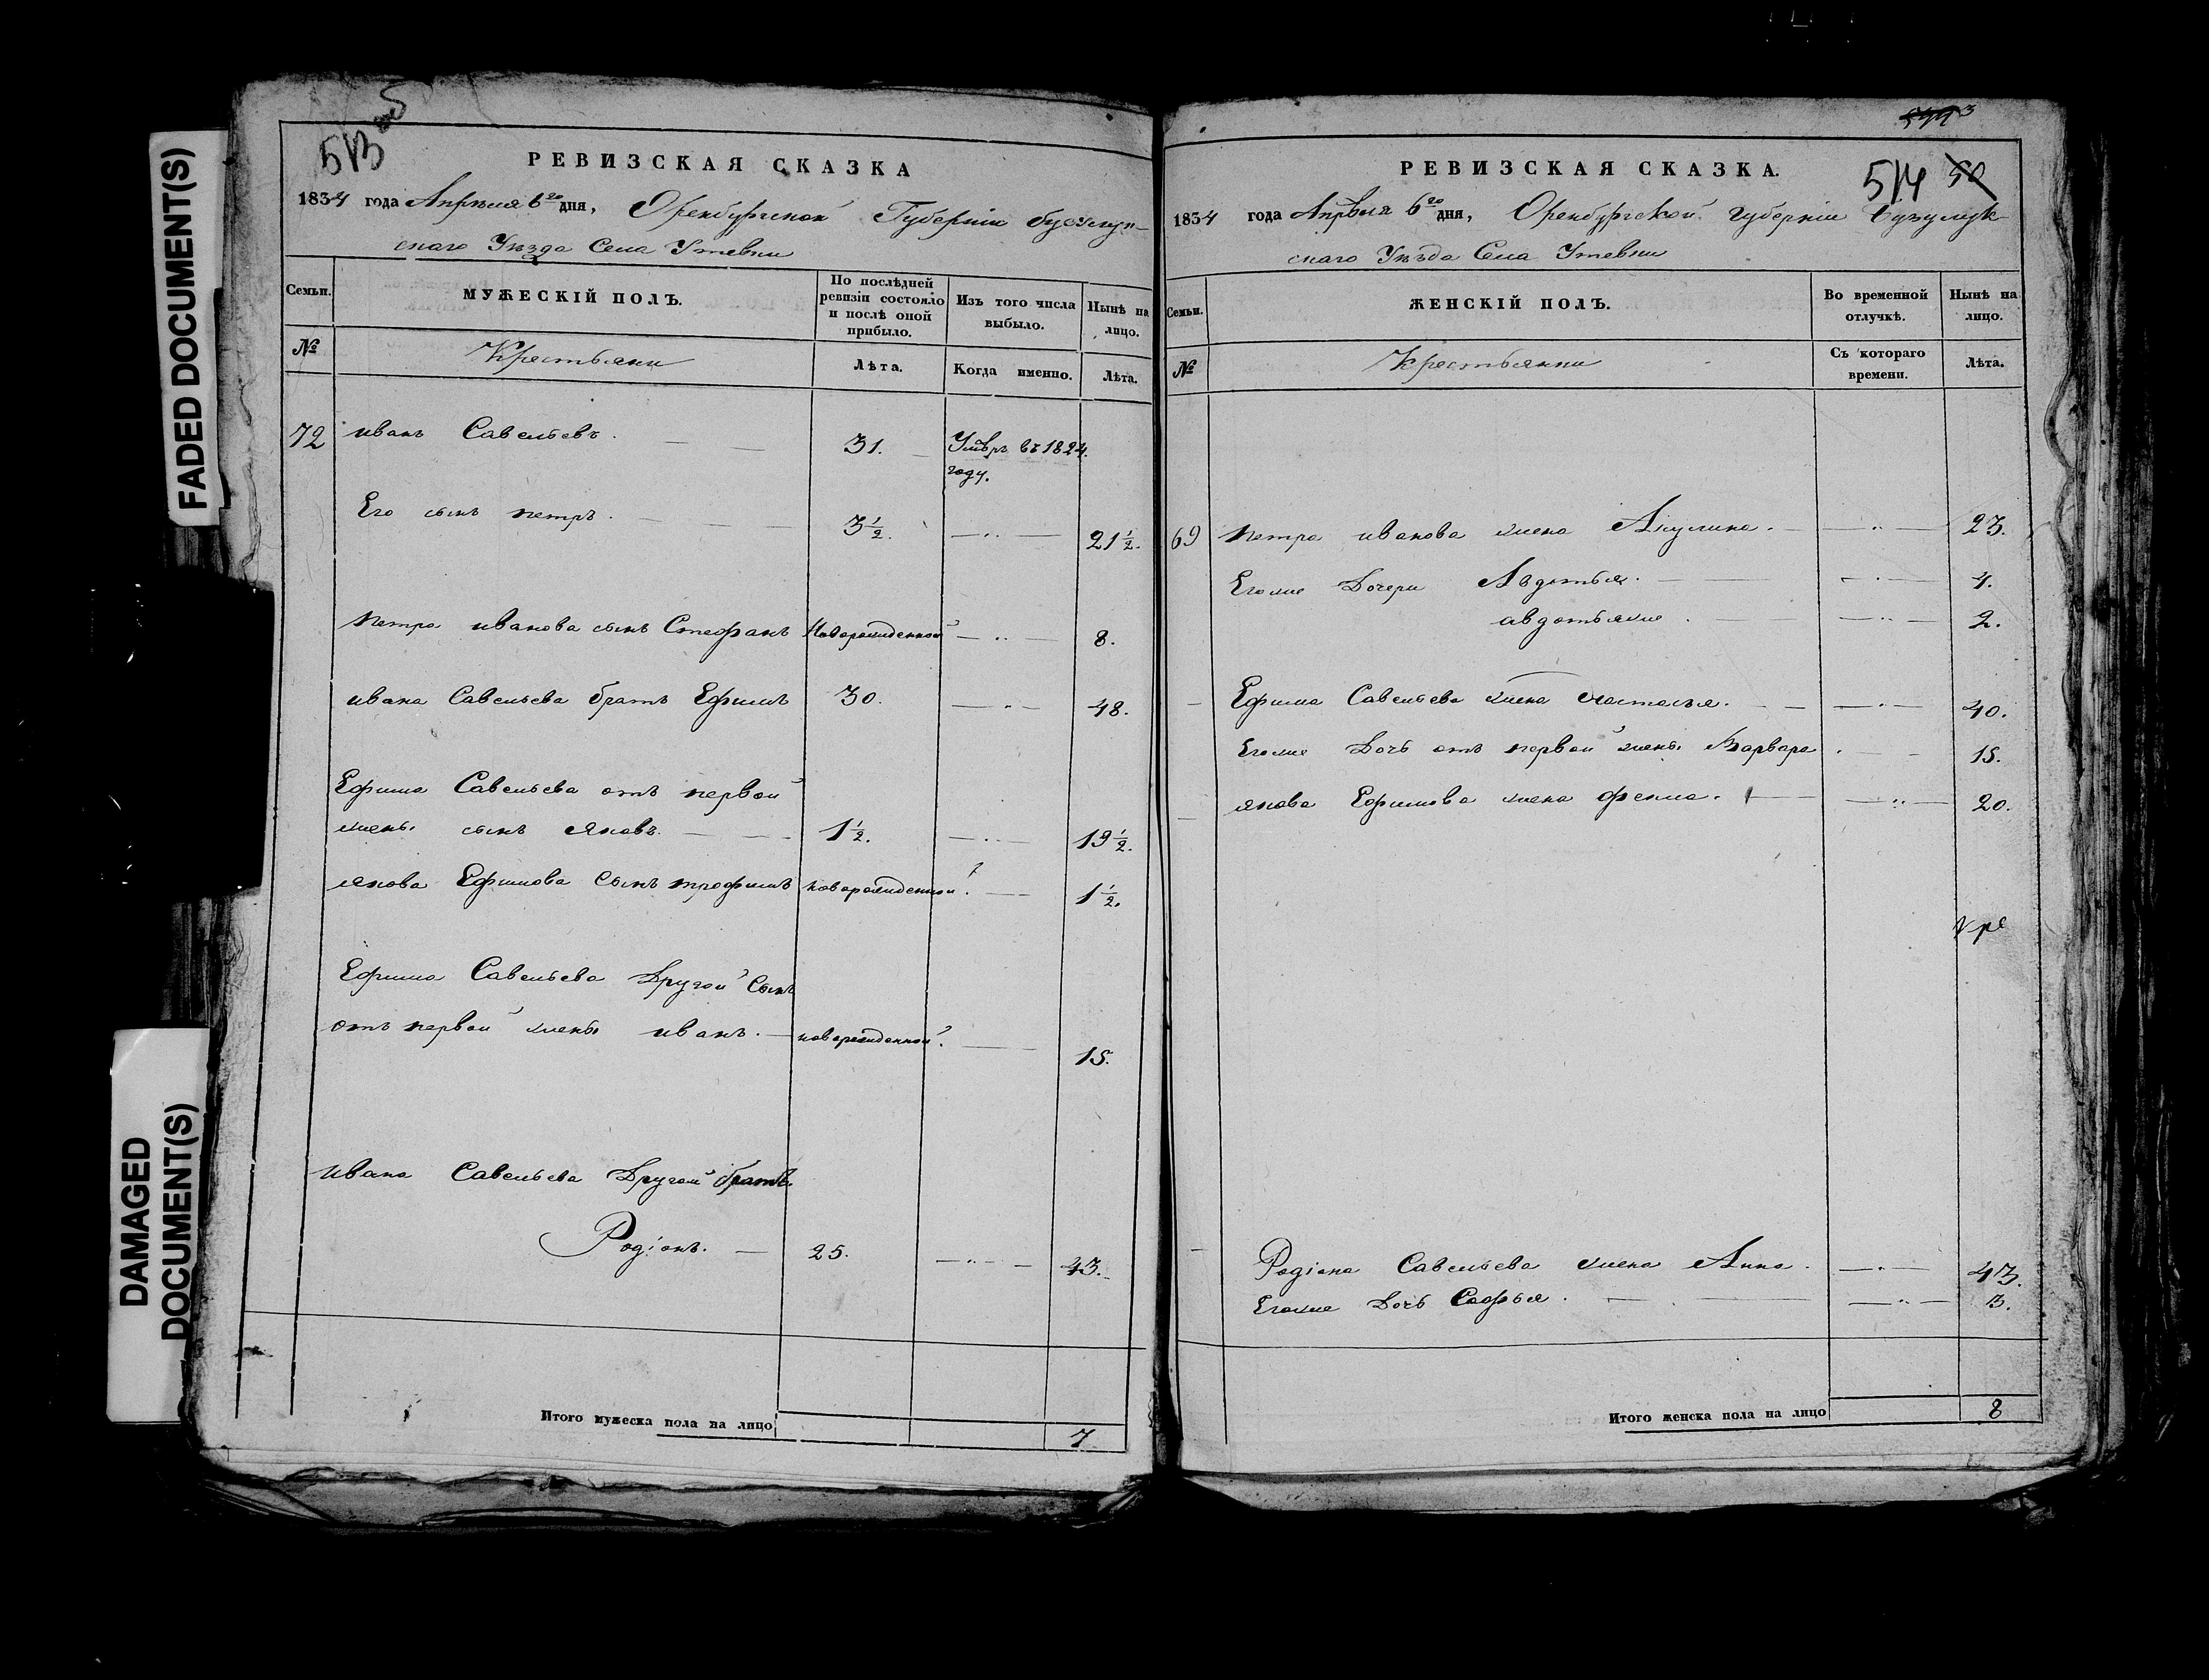 FADED DOCUMENT(S)
DAMAGED
DOCUMENT(S)
513
РЕВИЗСКАЯ СКАЗКА
1834 года Апрѣля 6го дня, Оренбургской Губерніи бузулук-
скаго Уѣзда Села Утевки
Семьи.
МУЖЕСКІЙ ПОЛЪ.
По послѣдней ревизіи состояло и послѣ оной прибыло.
Изъ того числа выбыло.
Нынѣ на лицо.
№
Крестьяни
Лѣта.
Когда именно.
Лѣта.
72 иванъ Савельевъ. 31. Умѣръ въ 1824.
году.
Его сынъ петръ. 3½. 21½.
петра иванова сынъ Стефанъ Новорожденной 8.
ивана Савельева братъ Ефимъ 30. 48.
Ефима Савельева отъ первой
жены сынъ Яковъ. 1½. 19½.
якова Ефимова Сынъ трофимъ новорожденной 1½.
Ефима Савельева Другой Сынъ
отъ первой жены иванъ. новорожденной. 15.
ивана Савельева Другой братъ
Родіонъ. 25. 43.
Итого мужеска пола на лицо 7
514 50
РЕВИЗСКАЯ СКАЗКА.
1834 года Апрѣля 6го дня, Оренбургской губерніи Бузулук-
скаго Уѣзда Села Утевки
Семьи.
ЖЕНСКІЙ ПОЛЪ.
Во временной отлучкѣ.
Нынѣ на лицо.
№
Крестьянки
Съ котораго времени.
Лѣта.
69 петра иванова жена Акулина. 23.
Егоже Дочери Авдотья. 4.
авдотьяже 2.
Ефима Савельева жена Настасья. 40.
Егоже Дочь отъ первой жены Варвара. 15.
якова Ефимова жена фекла. 20.
Родіона Савельева жена Анна. 43.
Егоже Дочь Софья. 13.
Итого женска пола на лицо 8